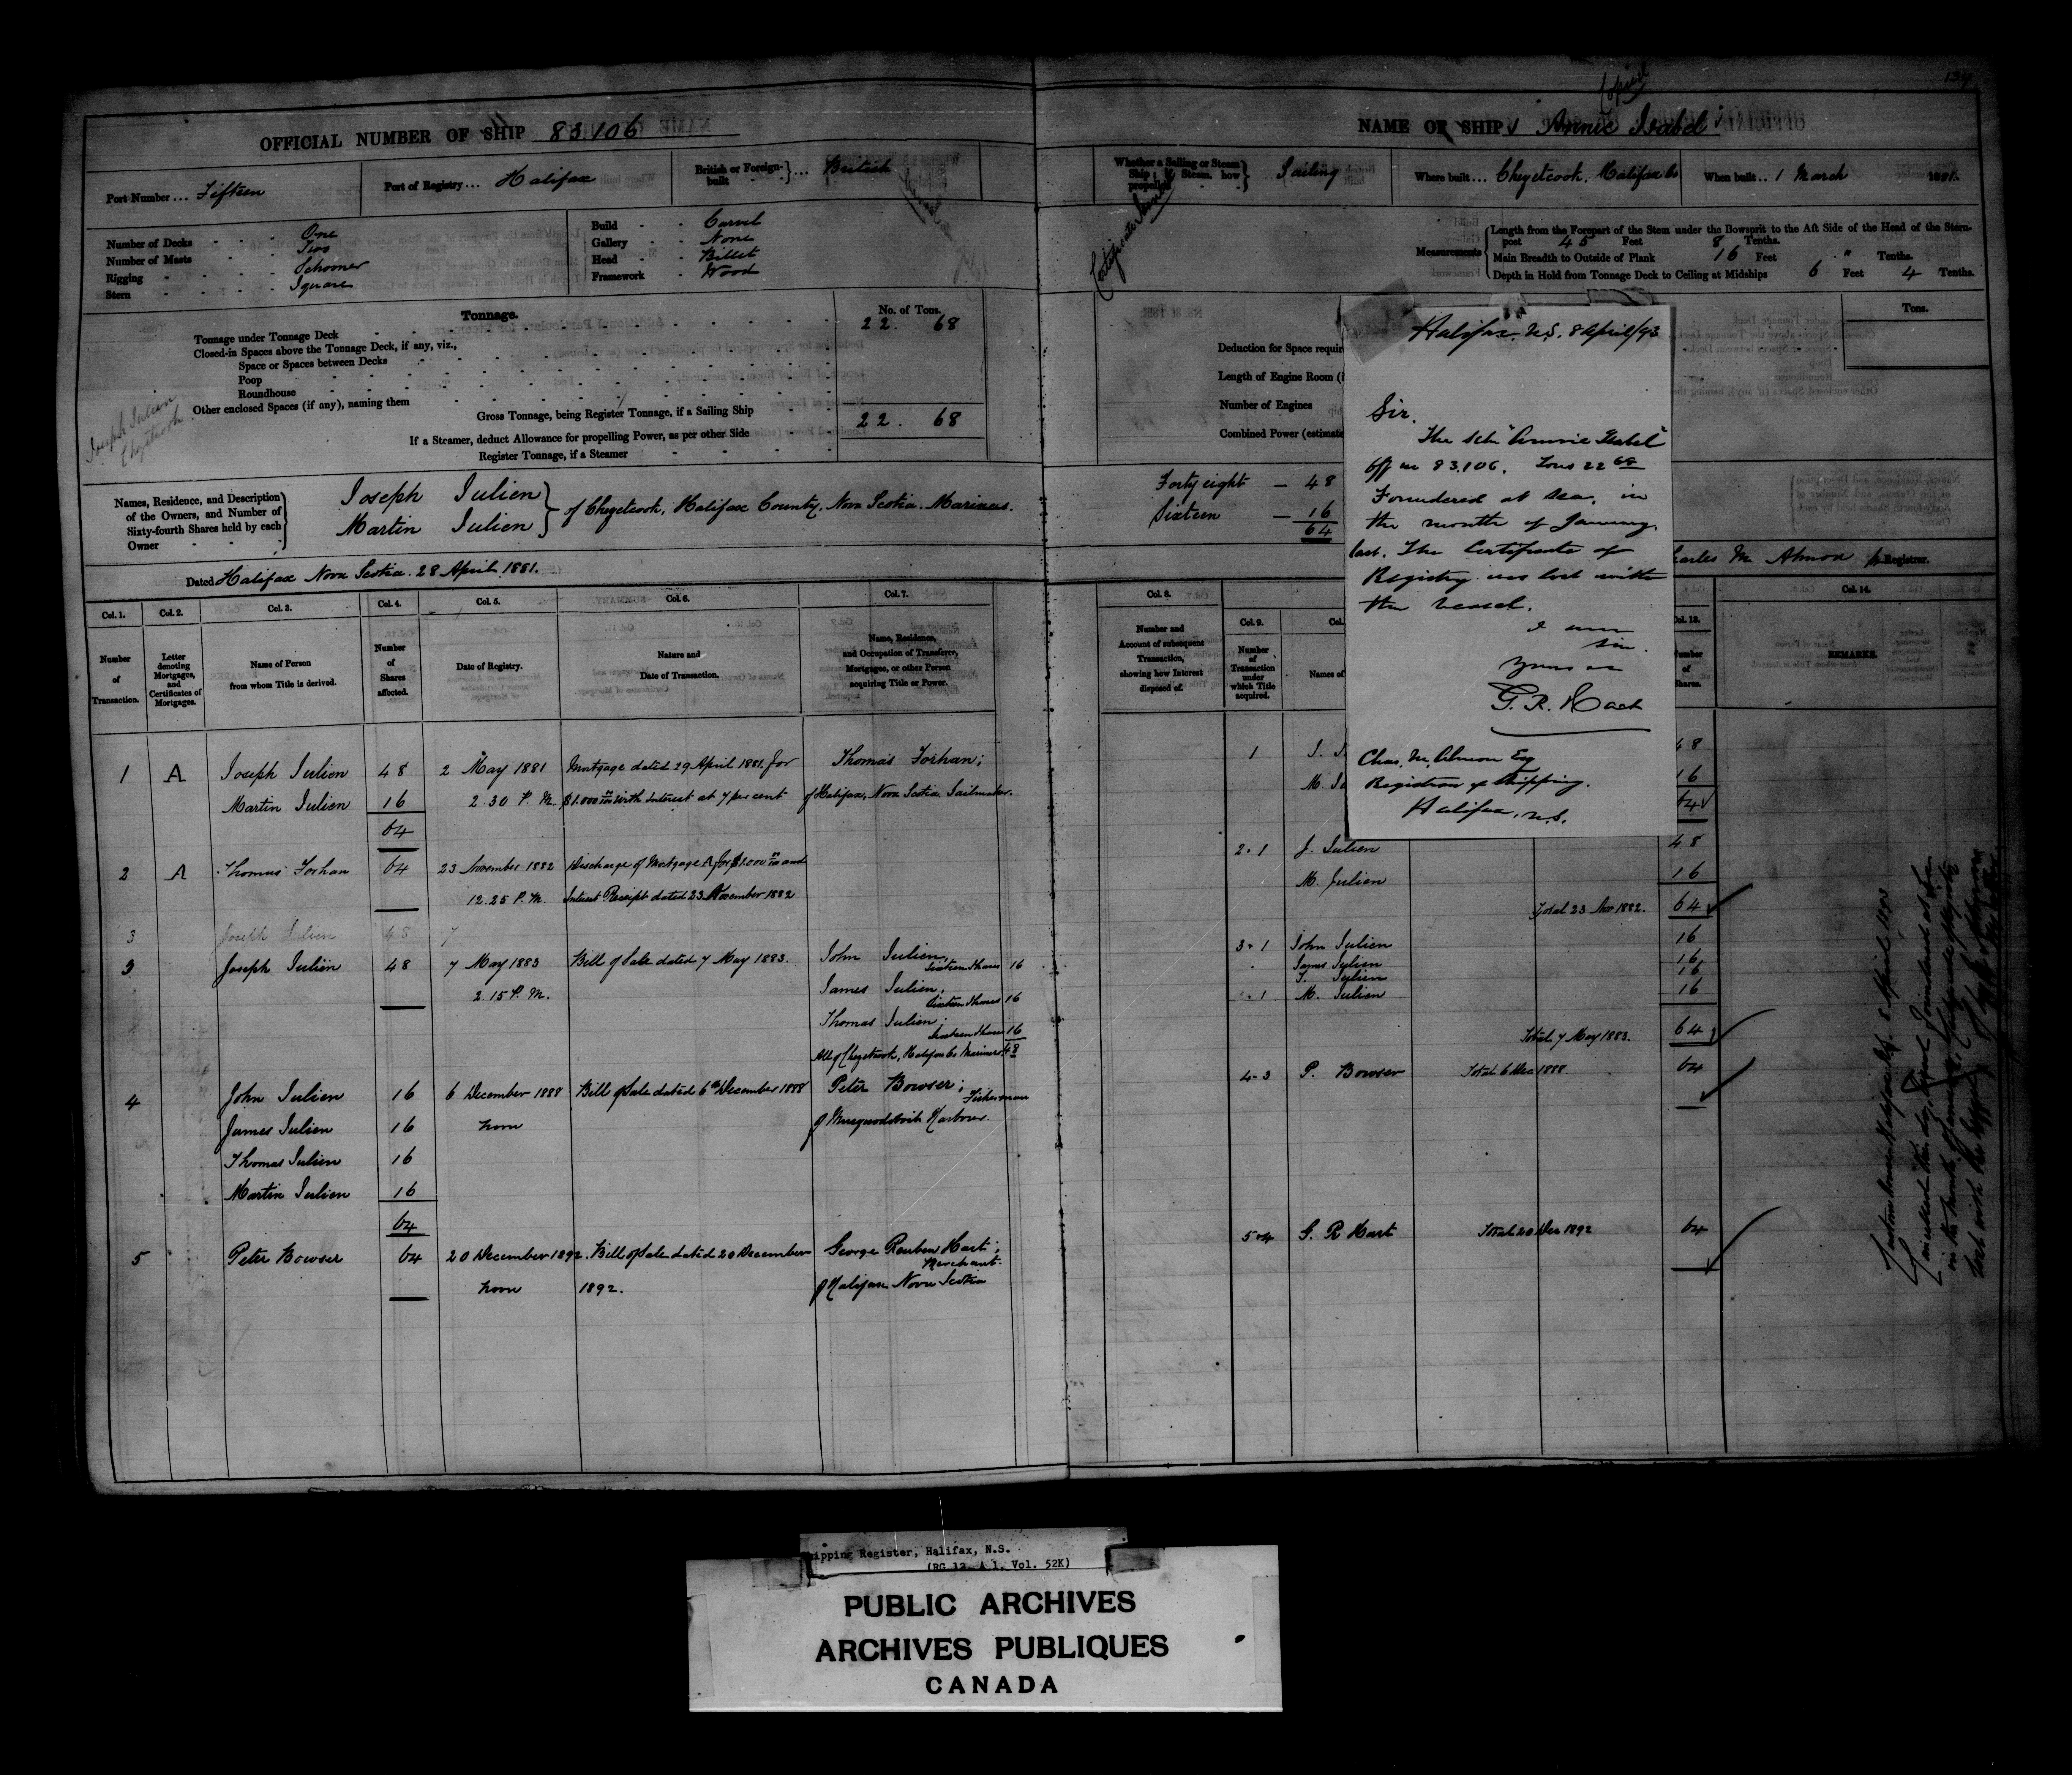 134
Copied
OFFICIAL NUMBER OF SHIP 83.106
NAME OF SHIP Annie Isabel
Port Number ... Fifteen
Port of Registry ... Halifax
British or Foreign-built } ... British
Whether a Sailing or Steam Ship; if Steam, how propelled } Sailing
Where built ... Chezetcook. Halifax Co
When built .. 1 March 1881.
Number of Decks One
Number of Masts Two
Rigging Schooner
Stern Square
Build Carvel
Gallery None
Head Billet
Framework Wood
Measurements
Length from the Forepart of the Stem under the Bowsprit to the Aft Side of the Head of the Stern-
post 45 Feet 8 Tenths.
Main Breadth to Outside of Plank 16 Feet " Tenths.
Depth in Hold from Tonnage Deck to Ceiling at Midships 6 Feet 4 Tenths.
Tonnage.
No. of Tons.
Tonnage under Tonnage Deck 22. 68
Closed-in Spaces above the Tonnage Deck, if any, viz.,
Space or Spaces between Decks
Poop
Roundhouse
Other enclosed Spaces (if any), naming them
Gross Tonnage, being Register Tonnage, if a Sailing Ship 22. 68
If a Steamer, deduct Allowance for propelling Power, as per other Side
Register Tonnage, if a Steamer
Joseph Julien
Chezetcook
Tons.
Deduction for Space requir
Length of Engine Room (i
Number of Engines
Combined Power (estimate
Names, Residence, and Description
of the Owners, and Number of
Sixty-fourth Shares held by each
Owner
Joseph Julien
Martin Julien
} of Chezetcook, Halifax County, Nova Scotia. Mariners.
Forty eight — 48
Sixteen — 16
64
Dated Halifax Nova Scotia. 28 April 1881.
harles M Almon Registrar.
Halifax. N.S. 8 April/93
Sir.
The Sch "Annie Isabel"
Off no 83.106. Tons 22 68
Foundered at sea, in
the month of January
last. The Certificate of
Registry was lost with
the vessel.
I am
Sir.
Yours &c
G. R. Hart
Chas. M. Almon Esq
Registrar of Shipping.
Halifax, N.S.
Col. 1. Col. 2. Col. 3. Col. 4. Col. 5. Col. 6. Col. 7. Col. 8. Col. 9. Col. Col. 13. Col. 14.
Number of Transaction.
Letter denoting Mortgages, and Certificates of Mortgages.
Name of Person from whom Title is derived.
Number of Shares affected.
Date of Registry.
Nature and Date of Transaction.
Name, Residence, and Occupation of Transferee, Mortgagee, or other Person acquiring Title or Power.
Number and Account of subsequent Transaction, showing how Interest disposed of.
Number of Transaction under which Title acquired.
Names of
Number of Shares.
REMARKS.
1 A Joseph Julien 48 2 May 1881 Mortgage dated 29 April 1881. for Thomas Forhan; 1 J. J 48
Martin Julien 16 2.30 P.M. $1.000 with Interest at 7 per cent of Halifax, Nova Scotia Sailmaker. M. Ju 16
64 64
2 A Thomas Forhan 64 23 November 1882 Discharge of Mortgage A for $1.000 and 2.1 J. Julien 48
12.25 P.M. Interest Receipt dated 23 November 1882 M. Julien 16
Total 23 Nov 1882. 64
3 Joseph Julien 48 7
3 Joseph Julien 48 7 May 1883 Bill of Sale dated 7 May 1883. John Julien, Sixteen Shares 16 3.1 John Julien 16
2.15 P.M. James Julien, Sixteen Shares 16 James Julien 16
Thomas Julien; Sixteen Shares 16 T. Julien 16
All of Chezetcook, Halifax Co Mariners 48 .1 M. Julien 16
Total 7 May 1883. 64
4 John Julien 16 6 December 1888 Bill of Sale dated 6th December 1888 Peter Bowser; Fisherman 4.3 P. Bowser Total 6 Dec 1888. 64
James Julien 16 noon of Musquodoboit Harbour.
Thomas Julien 16
Martin Julien 16
64
5 Peter Bowser 64 20 December 1892. Bill of Sale dated 20 December George Reuben Hart; Merchant. 5.4 G. R Hart Total 20 Dec 1892 64
noon 1892. of Halifax Nova Scotia
hipping Register, Halifax, N.S.
(RG 12, A 1, Vol. 52K)
PUBLIC ARCHIVES
ARCHIVES PUBLIQUES
CANADA